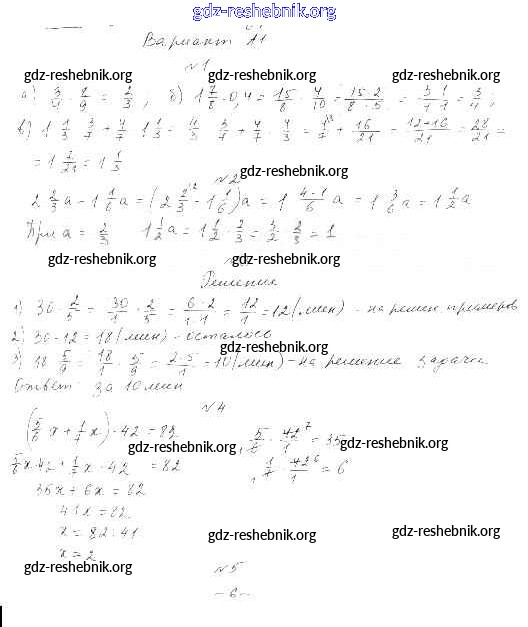 gdz-reshebnik.org
Вариант А1
№1
gdz-reshebnik.org gdz-reshebnik.org gdz-reshebnik.org
а) 3/4 · 8/9 = 2/3; б) 1 7/8 · 0,4 = 15/8 · 4/10 = 15·2/8·5 = 3·1/4·1 = 3/4;
в) 1 1/3 · 3/7 + 4/7 · 1 1/3 = 4/3 · 3/7 + 4/7 · 4/3 = + 16/21 = 12+16/21 = 28/21 =
= 1 7/21 = 1 1/3
gdz-reshebnik.org
№2
2 2/3 а - 1 1/6 а = (2 2/3 - 1 1/6) а = 1 4-1/6 а = 1 3/6 а = 1 1/2 а
При а = 2/3 1 1/2 а = 1 1/2 · 2/3 = 3/2 · 2/3 = 1
gdz-reshebnik.org gdz-reshebnik.org
Решение
1) 30 · 2/5 = 30/1 · 2/5 = 6·2/1·1 = 12/1 = 12 (мин) - на решен. примеров
2) 30-12 = 18 (мин) - осталось
gdz-reshebnik.org
3) 18 · 5/9 = 18/1 · 5/9 = 2·5/1 = 10 (мин) - на решение задачи
Ответ: за 10 мин
№4
(5/6 х + 1/7 х) · 42 = 82
5/6 · 42/1 = 35
gdz-reshebnik.org gdz-reshebnik.org
5/6 х · 42 + 1/7 х · 42 = 82
1/7 · 42/1 = 6
35х + 6х = 82
41х = 82
х = 82 : 41
gdz-reshebnik.org gdz-reshebnik.org
х = 2
gdz-reshebnik.org
№5
- 6 -